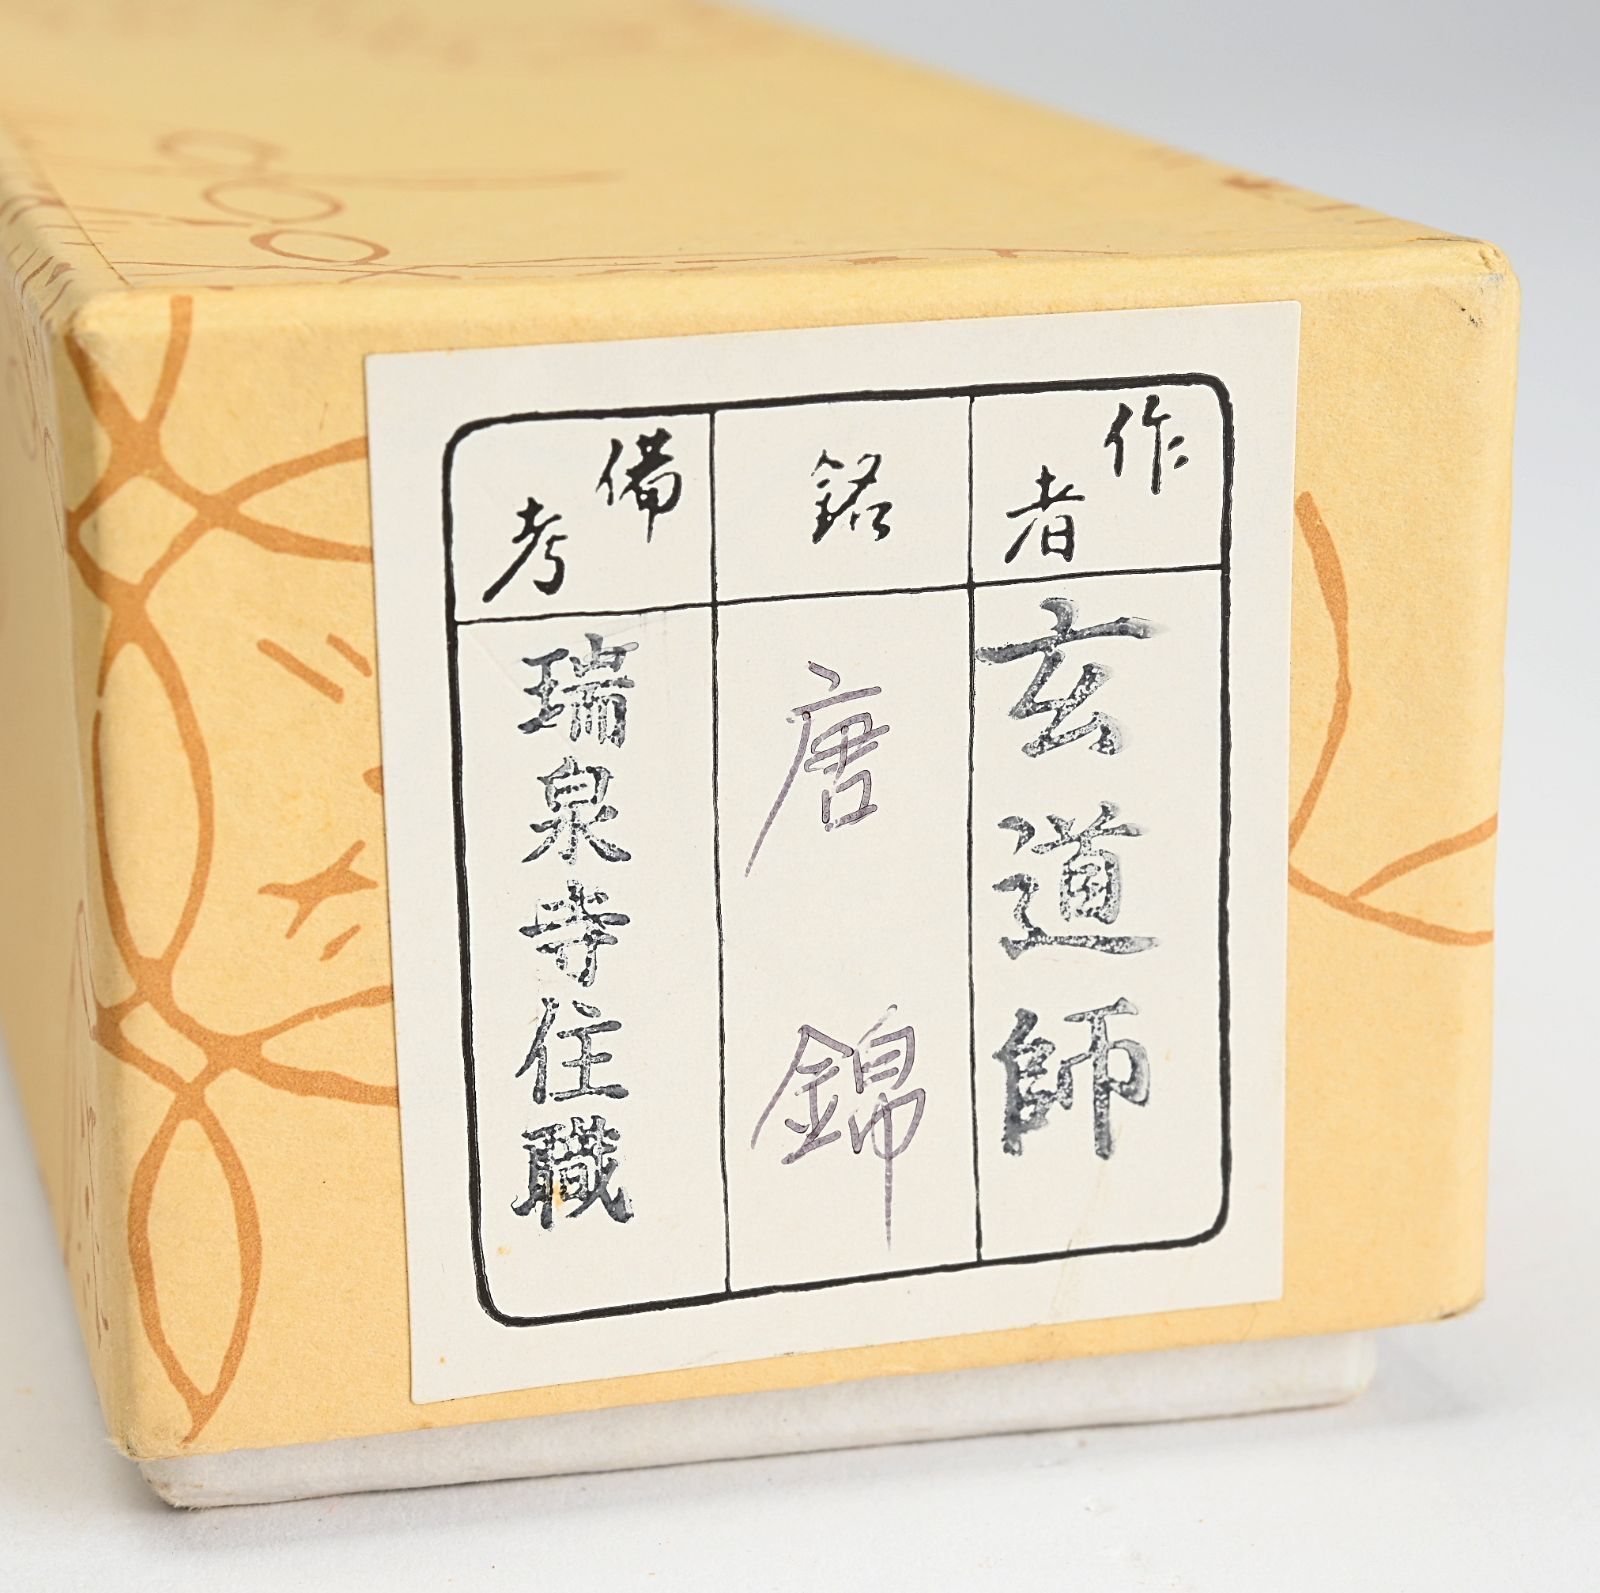 作者
玄道師
銘
唐錦
備考
瑞泉寺住職